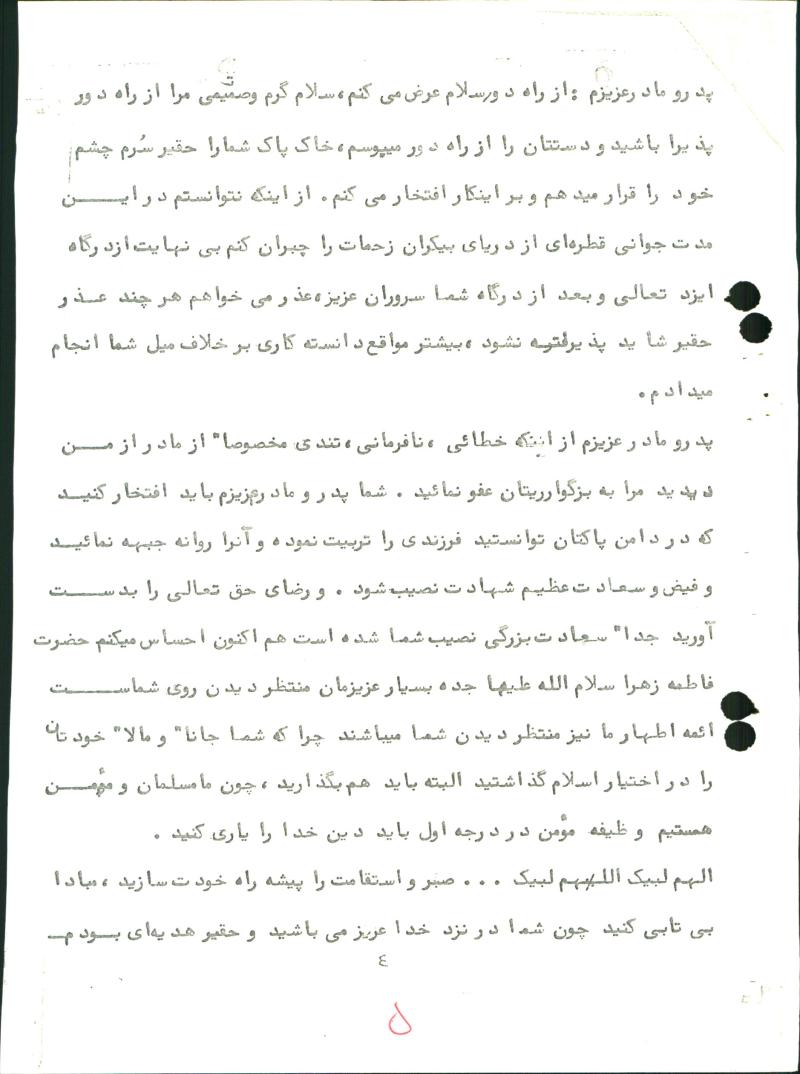 پدر و مادر عزیزم : از راه دور سلام عرض می کنم، سلام گرم و صمیمی مرا از راه دور
پذیرا باشید و دستتان را از راه دور میبوسم، خاک پاک شما را حقیر سُرم چشم
خود را قرار میدهم و بر اینکار افتخار می کنم. از اینکه نتوانستم در ایـــن
مدت جوانی قطره‌ای از دریای بیکران زحمات را جبران کنم بی نهایت از درگاه
ایزد تعالی و بعد از درگاه شما سروران عزیز، عذر می خواهم هر چند عـذر
حقیر شاید پذیرفته نشود، بیشتر مواقع دانسته کاری بر خلاف میل شما انجام
میدادم.
پدر و مادر عزیزم از اینکه خطائی ، نافرمانی، تندی مخصوصا" از مادر از مـــن
دیدید مرا به بزگوارریتان عفو نمائید . شما پدر و مادر عزیزم باید افتخار کنیــد
که در دامن پاکتان توانستید فرزندی را تربیت نموده و آنرا روانه جبهه نمائیــد
و فیض و سعادت عظیم شهادت نصیب شود . و رضای حق تعالی را بدســـت
آورید جدا" سعادت بزرگی نصیب شما شده است هم اکنون احساس میکنم حضرت
فاطمه زهرا سلام الله علیها جده بسیار عزیزمان منتظر دیدن روی شماســـت
ائمه اطهار ما نیز منتظر دیدن شما میباشند چرا که شما جانا" و مالا" خودتان
را در اختیار اسلام گذاشتید البته باید هم بگذارید ، چون ما مسلمان و مؤمـــن
هستیم و ظیفه مؤمن در درجه اول باید دین خدا را یاری کنید .
الهم لبیک اللهم لبیک ... صبر و استقامت را پیشه راه خودت سازید ، مبادا
بی تابی کنید چون شما در نزد خدا عزیز می باشید و حقیر هدیه‌ای بــودمـ
٤
۵